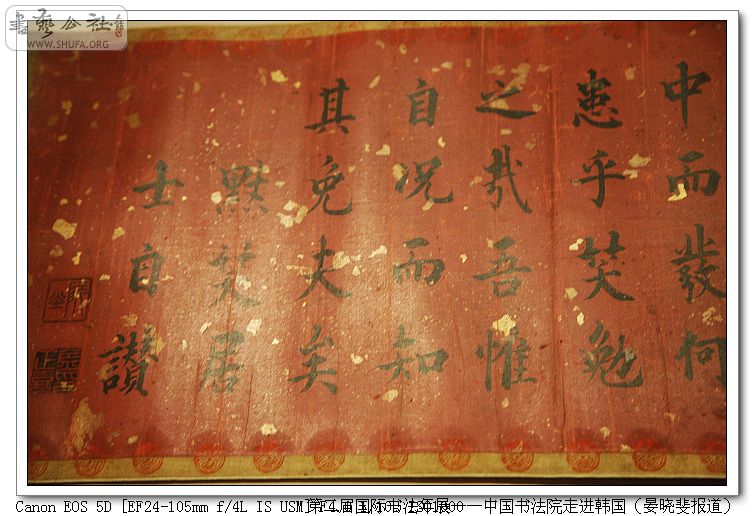 書藝公社
WWW.SHUFA.ORG
中而發何
患乎笑勉
之哉吾惟
自况而知
其免夫矣
默笑居
士自讚
Canon EOS 5D [EF24-105mm f/4L IS USM] 第二届国际书法年展——中国书法院走进韩国（晏晓斐报道）